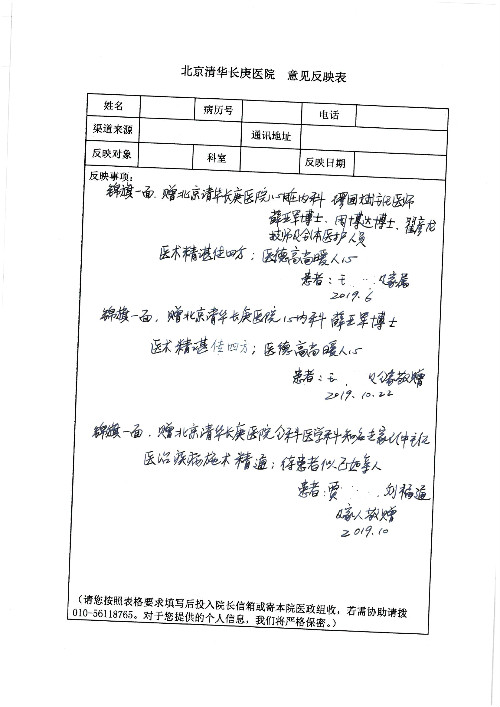 北京清华长庚医院 意见反映表
姓名 病历号 电话
渠道来源 通讯地址
反映对象 科室 反映日期
反映事项：
锦旗一面，赠北京清华长庚医院心脏内科 缪国斌主任医师
薛亚军博士、周博达博士、翟彦龙
技师及全体医护人员
医术精湛佳四方；医德高尚暖人心
患者：王 及家属
2019.6
锦旗一面，赠北京清华长庚医院心内科 薛亚军博士
医术精湛佳四方；医德高尚暖人心
患者：王 及全家敬赠
2019.10.22
锦旗一面，赠北京清华长庚医院全科医学科知名专家 主任
医治疾病施术精通；待患者似己如亲人
患者：贾 刘福通
及家人敬赠
2019.10
（请您按照表格要求填写后投入院长信箱或寄本院医政组收，若需协助请拨
010-56118765。对于您提供的个人信息，我们将严格保密。）